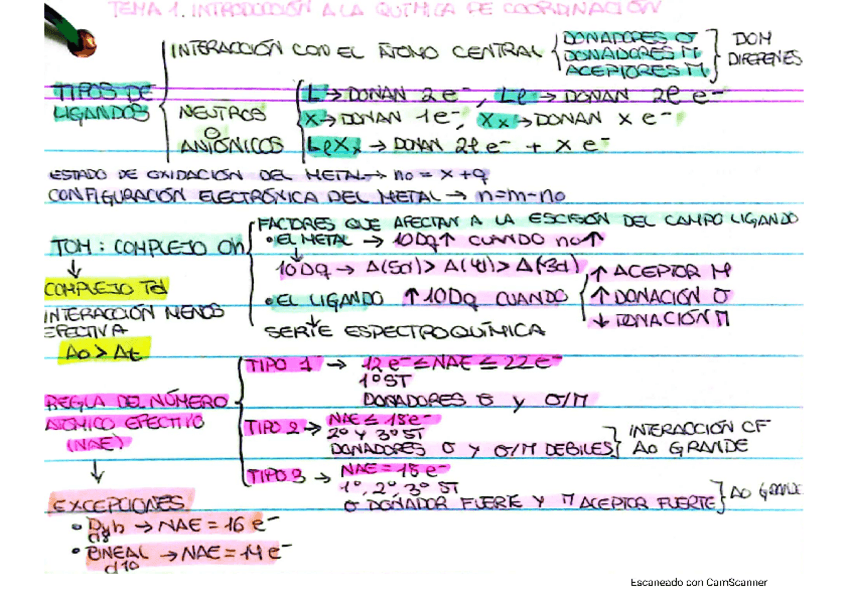 TEMA 1. INTRODUCCIÓN A LA QUÍMICA DE COORDINACIÓN
TIPOS DE
LIGANDOS
INTERACCIÓN CON EL ÁTOMO CENTRAL
DONADORES σ
DONADORES π
ACEPTORES π
DOM
DIFERENES
NEUTROS
O
ANIÓNICOS
L → DONAN 2 e⁻, Lℓ → DONAN 2ℓ e⁻
X → DONAN 1e⁻, Xx → DONAN x e⁻
LℓXx → DONAN 2ℓ e⁻ + x e⁻
ESTADO DE OXIDACIÓN DEL METAL → no = x + q
CONFIGURACIÓN ELECTRÓNICA DEL METAL → n = m - no
TOM: COMPLEJO Oh
↓
COMPLEJO Td
INTERACCIÓN MENOS
EFECTIVA
Δo > Δt
FACTORES QUE AFECTAN A LA ESCISIÓN DEL CAMPO LIGANDO
• EL METAL → 10Dq↑ CUANDO no↑
↓
10Dq → Δ(5d) > Δ(4d) > Δ(3d)
• EL LIGANDO ↑ 10Dq CUANDO
↓
SERIE ESPECTROQUÍMICA
↑ ACEPTOR π
↑ DONACIÓN σ
↓ DONACIÓN π
REGLA DEL NÚMERO
ATÓMICO EFECTIVO
(NAE)
TIPO 1 → 12 e⁻ ≤ NAE ≤ 22 e⁻
1º ST
DONADORES σ y σ/π
TIPO 2 → NAE ≤ 18 e⁻
2º y 3º ST
DONADORES σ y σ/π DEBILES
INTERACCIÓN CF
Δo GRANDE
TIPO 3 → NAE = 18 e⁻
1º, 2º, 3º ST
σ DONADOR FUERTE Y π ACEPTOR FUERTE
Δo GRANDE
↓
EXCEPCIONES
• D4h → NAE = 16 e⁻
d8
• LINEAL → NAE = 14 e⁻
d10
Escaneado con CamScanner